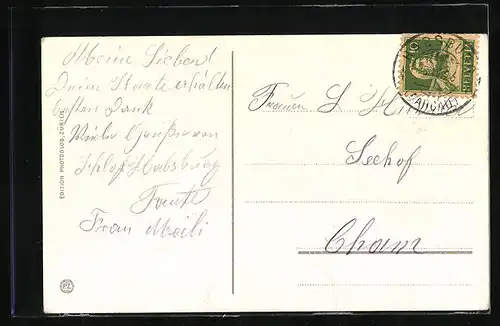 Meine Lieben!
Deine Karte erhalten
besten Dank
Viele Grüsse von
Schloss Habsburg
Frau Meili
Frauen L
Seehof
Cham
EDITION PHOTOGLOB, ZÜRICH
PZ
10
HELVETIA
SEON
(AARGAU)